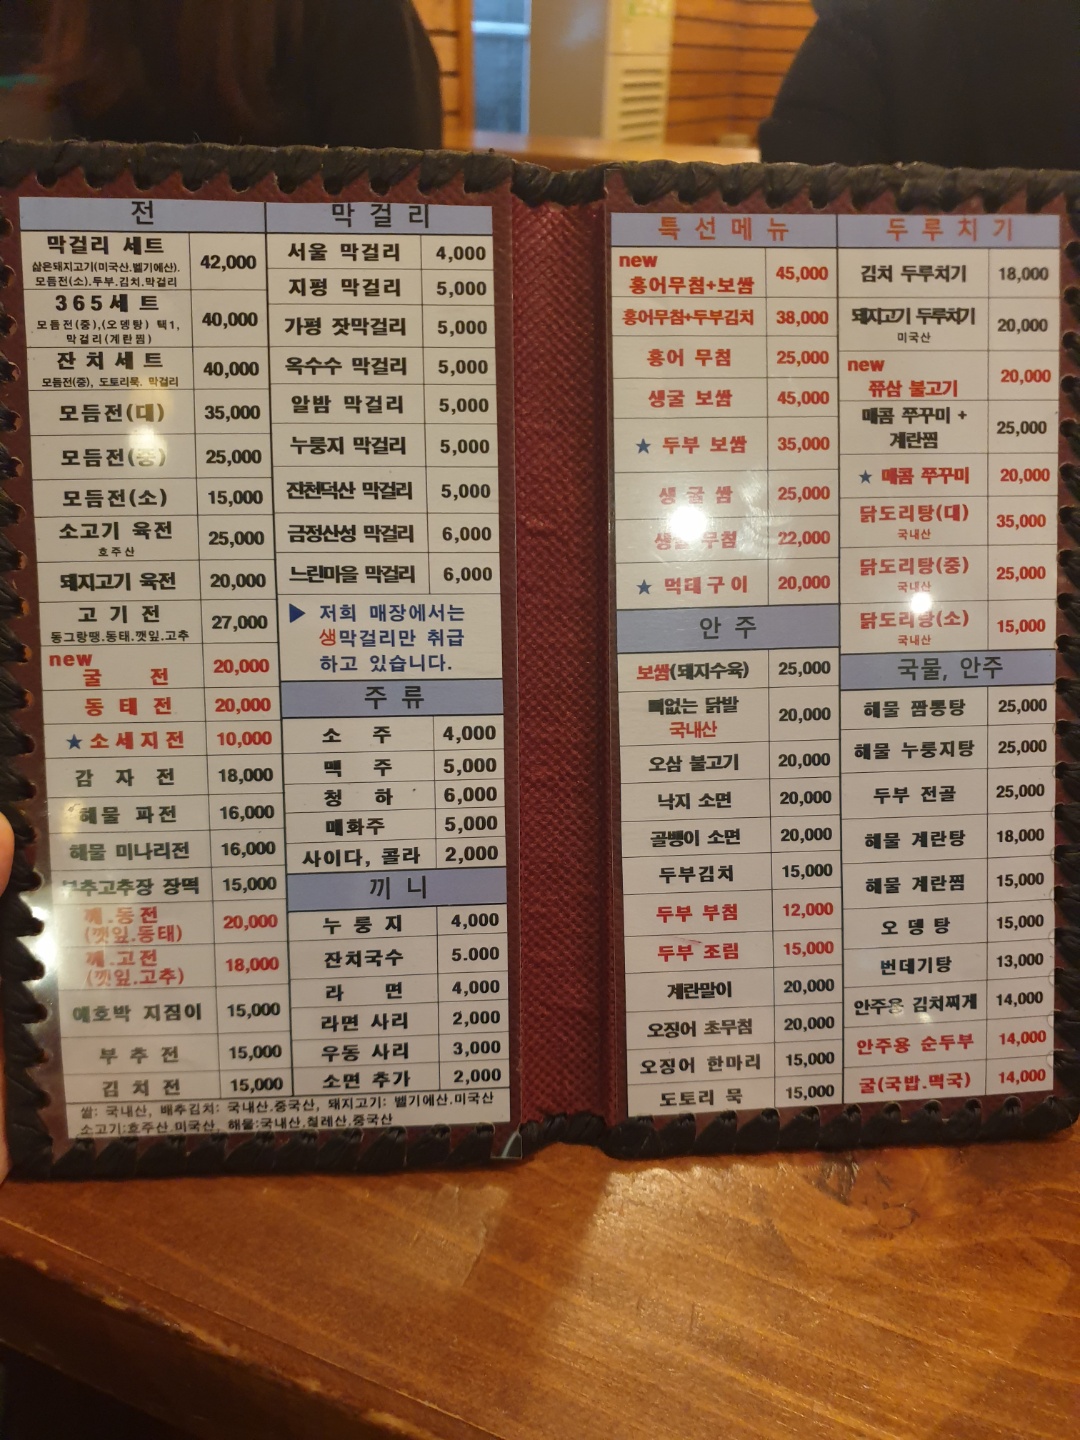 전
막걸리 세트 42,000
삶은돼지고기(미국산.벨기에산).
모듬전(소).두부.김치.막걸리
365세트 40,000
모듬전(중),(오뎅탕) 택1,
막걸리(계란찜)
잔치세트 40,000
모듬전(중), 도토리묵, 막걸리
모듬전(대) 35,000
모듬전(중) 25,000
모듬전(소) 15,000
소고기 육전 25,000
호주산
돼지고기 육전 20,000
고기전 27,000
동그랑땡.동태.깻잎.고추
new
굴 전 20,000
동태전 20,000
★소세지전 10,000
감자전 18,000
해물 파전 16,000
해물 미나리전 16,000
부추고추장 장떡 15,000
깨.동전 20,000
(깻잎.동태)
깨.고전 18,000
(깻잎.고추)
애호박 지짐이 15,000
부추전 15,000
김치전 15,000
막걸리
서울 막걸리 4,000
지평 막걸리 5,000
가평 잣막걸리 5,000
옥수수 막걸리 5,000
알밤 막걸리 5,000
누룽지 막걸리 5,000
진천덕산 막걸리 5,000
금정산성 막걸리 6,000
느린마을 막걸리 6,000
▶ 저희 매장에서는
생막걸리만 취급
하고 있습니다.
주류
소 주 4,000
맥 주 5,000
청 하 6,000
매화주 5,000
사이다, 콜라 2,000
끼니
누룽지 4,000
잔치국수 5.000
라 면 4,000
라면 사리 2,000
우동 사리 3,000
소면 추가 2,000
쌀: 국내산, 배추김치: 국내산.중국산, 돼지고기: 벨기에산.미국산
소고기:호주산.미국산, 해물:국내산.칠레산.중국산
특선메뉴
new
홍어무침+보쌈 45,000
홍어무침+두부김치 38,000
홍어 무침 25,000
생굴 보쌈 45,000
★ 두부 보쌈 35,000
생굴쌈 25,000
생굴 무침 22,000
★ 먹태구이 20,000
안주
보쌈(돼지수육) 25,000
뼈없는 닭발 20,000
국내산
오삼 불고기 20,000
낙지 소면 20,000
골뱅이 소면 20,000
두부김치 15,000
두부 부침 12,000
두부 조림 15,000
계란말이 20,000
오징어 초무침 20,000
오징어 한마리 15,000
도토리 묵 15,000
두루치기
김치 두루치기 18,000
돼지고기 두루치기 20,000
미국산
new
쮸삼 불고기 20,000
매콤 쭈꾸미 +
계란찜 25,000
★ 매콤 쭈꾸미 20,000
닭도리탕(대) 35,000
국내산
닭도리탕(중) 25,000
국내산
닭도리탕(소) 15,000
국내산
국물, 안주
해물 짬뽕탕 25,000
해물 누룽지탕 25,000
두부 전골 25,000
해물 계란탕 18,000
해물 계란찜 15,000
오뎅탕 15,000
번데기탕 13,000
안주용 김치찌게 14,000
안주용 순두부 14,000
굴(국밥.떡국) 14,000